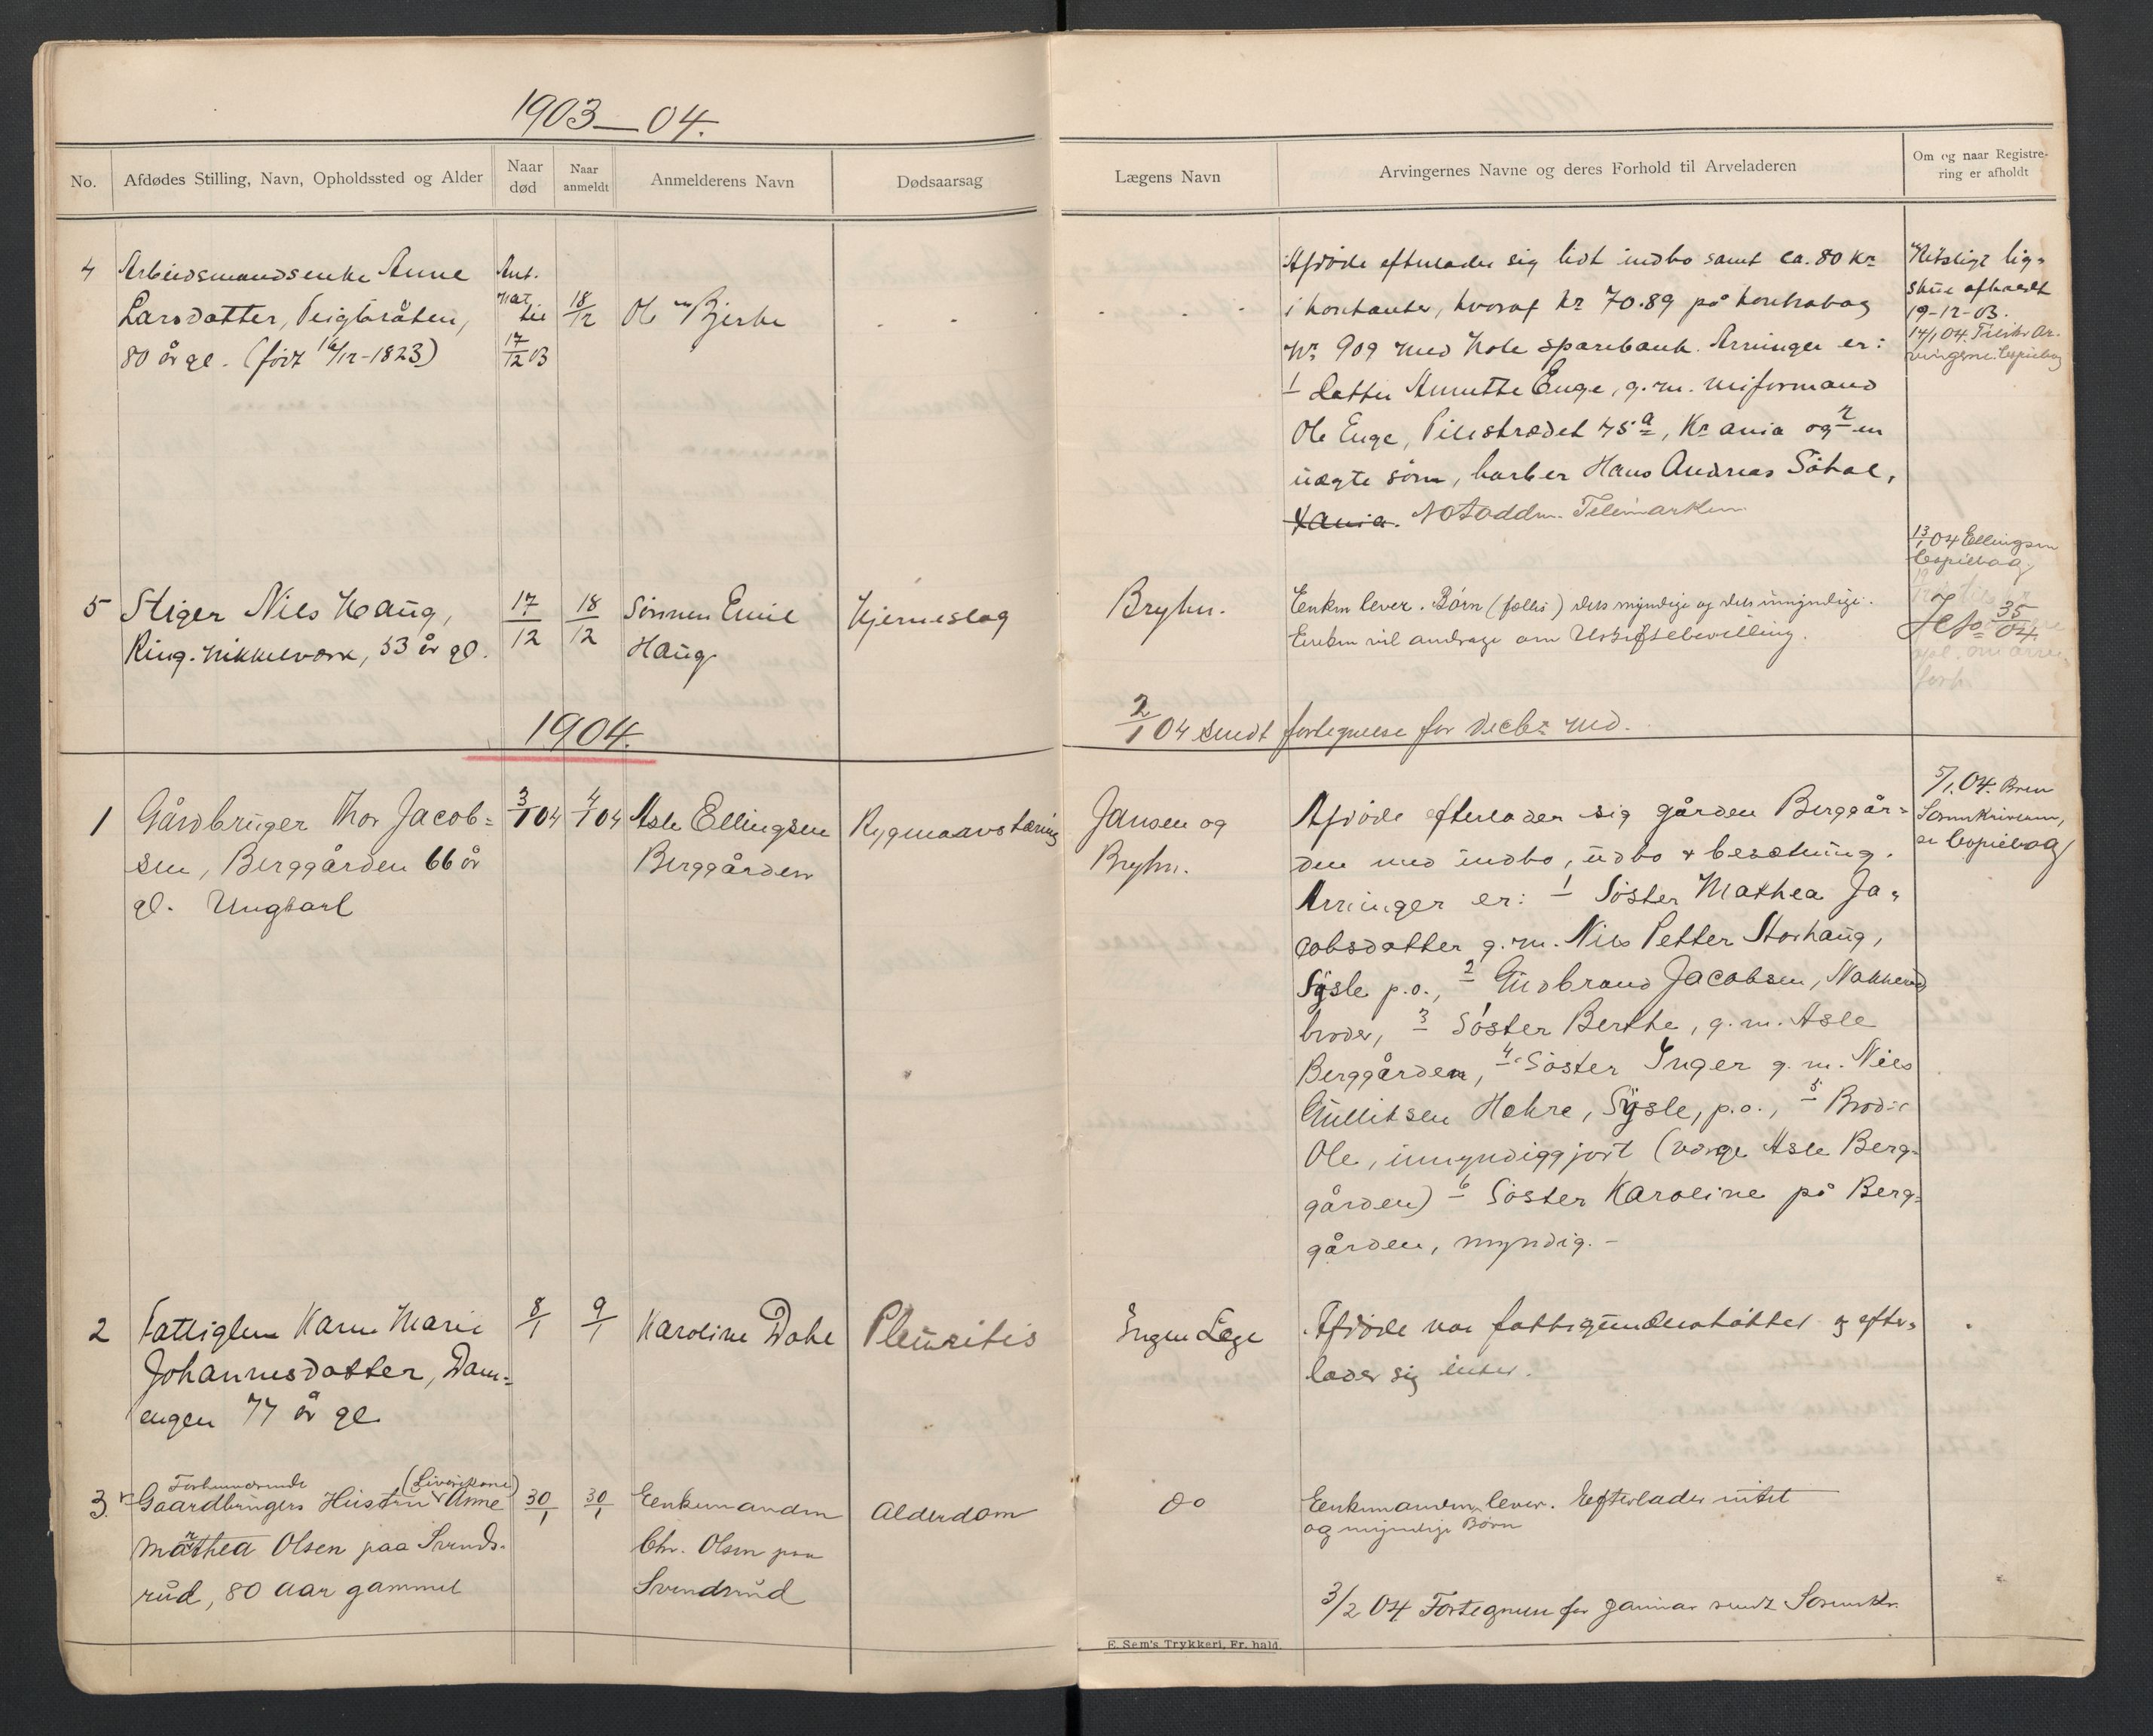 1903—04.
No.
Afdødes Stilling, Navn, Opholdssted og Alder
Naar død
Naar anmeldt
Anmelderens Navn
Dødsaarsag
Lægens Navn
Arvingernes Navne og deres Forhold til Arveladeren
Om og naar Registre-
ring er afholdt
4
Arbeidsmandsenke Anne
Larsdatter,
80 år gl. (født 16/12-1823)
Ant.
nat
til
17/12 03
18/12
Ole Bjerke
Afdøde efterlader sig lidt indbo samt ca. 80 Kr
i kontanter, hvoraf kr 70.89 på kontrabog
Nr 909 med Hole sparebank. Arvinger er:
1 datter Annette Enge, g.m. uniformand
Ole Enge, Pilestrædet 75 a, Kr ania og 2 en
uægte sønn, barber Hans Andreas
Kania. Notodden. Telemarken
lig-
skue afholdt
19-12-03.
14/1 04. Ar-
vingerne. Copiebog
5
Stiger Nils Haug,
Ring. Nikkelværk, 53 år gl.
17/12
18/12
Sønnen Emil
Haug
Hjerneslag
Bryhn.
Enken lever. Børn (fælles) dels myndige og dels umyndige.
Enken vil andrage om Uskiftebevilling.
13/1 04 Ellingsen
Copiebog
35/04
1904.
2/1 04 sendt fortegnelse for decbr md.
1
Gårdbruger Thor Jacob-
sen, Berggården 66 år
gl. Ungkarl
3/1 04
4/1 04
Asle Ellingsen
Berggården
Rygmarvstæring
Jansen og
Bryhn.
Afdøde efterlader sig gården Berggår-
den med indbo, udbo & besætning.
Arvinger er: 1 Søster Mathea Ja-
cobsdatter g.m. Nils Petter Storhaug,
Sysle p.o., 2 Gudbrand Jacobsen, Nakkerud
broder, 3 Søster Berthe, g.m. Asle
Berggården, 4 Søster Inger g.m. Niels
Gulliksen Hohre, Sysle, p.o., 5 Broder
Ole, umyndiggjort (værge Asle Berg-
gården) 6 Søster Karoline på Berg-
gården, myndig. -
5/1 04. Brev
Sorenskriveren,
se Copiebog
2
Fattiglem Karen Marie
Johannesdatter, Dam-
engen 77 år gl
8/1
9/1
Karoline Dahl
Pleuritis
Ingen Læge
Afdøde var fattigunderstøttet og efter-
lader sig intet.
3.
Forhenværende (Livørekone)
Gaardbrugers Hustru Anne
Mathea Olsen paa Svends-
rud, 80 aar gammel
30/1
30/1
Enkemanden
Chr. Olsen paa
Svendsrud
Alderdom
do
Enkemanden lever. Efterlader intet
og myndige Børn
3/2 04 Fortegnelse for Januar sendt Sorenskr.
E. Sem's Trykkeri, Fr. hald.